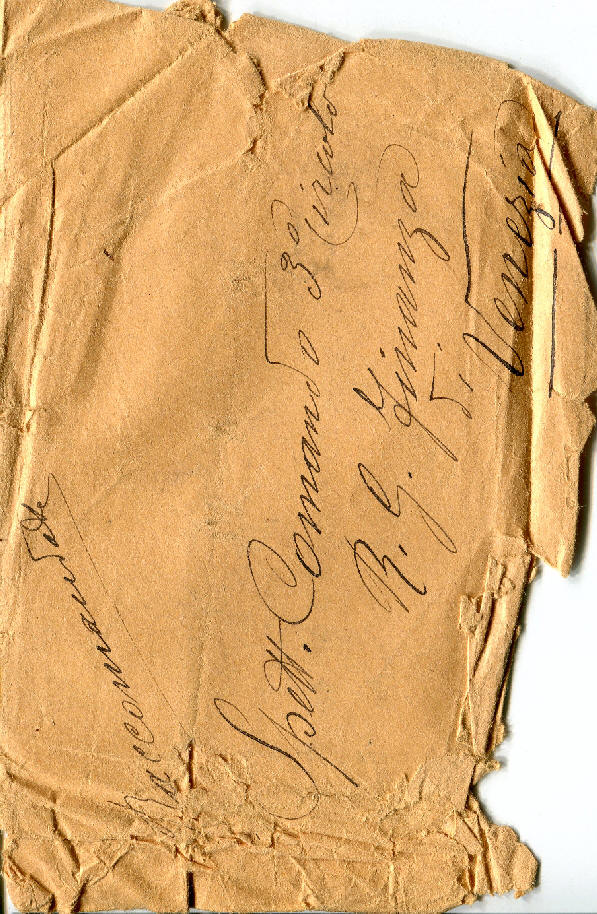 Raccomandate
Spett. Comando 3º Circolo
R. G. Finanza
di Venezia